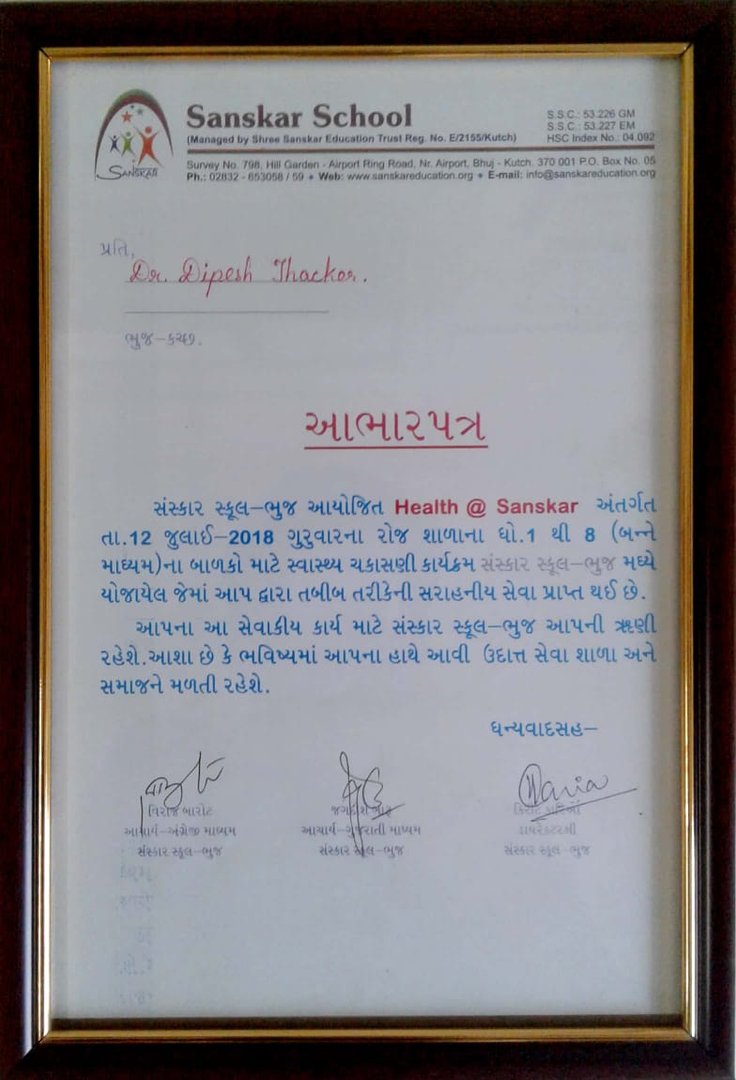 Sanskar School
(Managed by Shree Sanskar Education Trust Reg. No. E/2155/Kutch)
S.S.C.: 53.226 GM
S.S.C.: 53.227 EM
HSC Index No.: 04.092
SANSKAR
Survey No. 798, Hill Garden - Airport Ring Road, Nr. Airport, Bhuj - Kutch. 370 001 P.O. Box No. 05
Ph.: 02832 - 653058 / 59 • Web: www.sanskareducation.org • E-mail: info@sanskareducation.org
પ્રતિ,
Dr. Dipesh Thacker.
ભુજ–કચ્છ.
આભારપત્ર
સંસ્કાર સ્કૂલ–ભુજ આયોજિત Health @ Sanskar અંતર્ગત
તા.12 જુલાઈ–2018 ગુરુવારના રોજ શાળાના ધો.1 થી 8 (બન્ને
માધ્યમ)ના બાળકો માટે સ્વાસ્થ્ય ચકાસણી કાર્યક્રમ સંસ્કાર સ્કૂલ–ભુજ મધ્યે
યોજાયેલ જેમાં આપ દ્વારા તબીબ તરીકેની સરાહનીય સેવા પ્રાપ્ત થઈ છે.
આપના આ સેવાકીય કાર્ય માટે સંસ્કાર સ્કૂલ–ભુજ આપની ઋણી
રહેશે.આશા છે કે ભવિષ્યમાં આપના હાથે આવી ઉદાત્ત સેવા શાળા અને
સમાજને મળતી રહેશે.
ધન્યવાદસહ–
વિરાજ બારોટ
આચાર્ય–અંગ્રેજી માધ્યમ
સંસ્કાર સ્કૂલ–ભુજ
આચાર્ય–ગુજરાતી માધ્યમ
સંસ્કાર સ્કૂલ–ભુજ
ડાયરેક્ટરશ્રી
સંસ્કાર સ્કૂલ–ભુજ